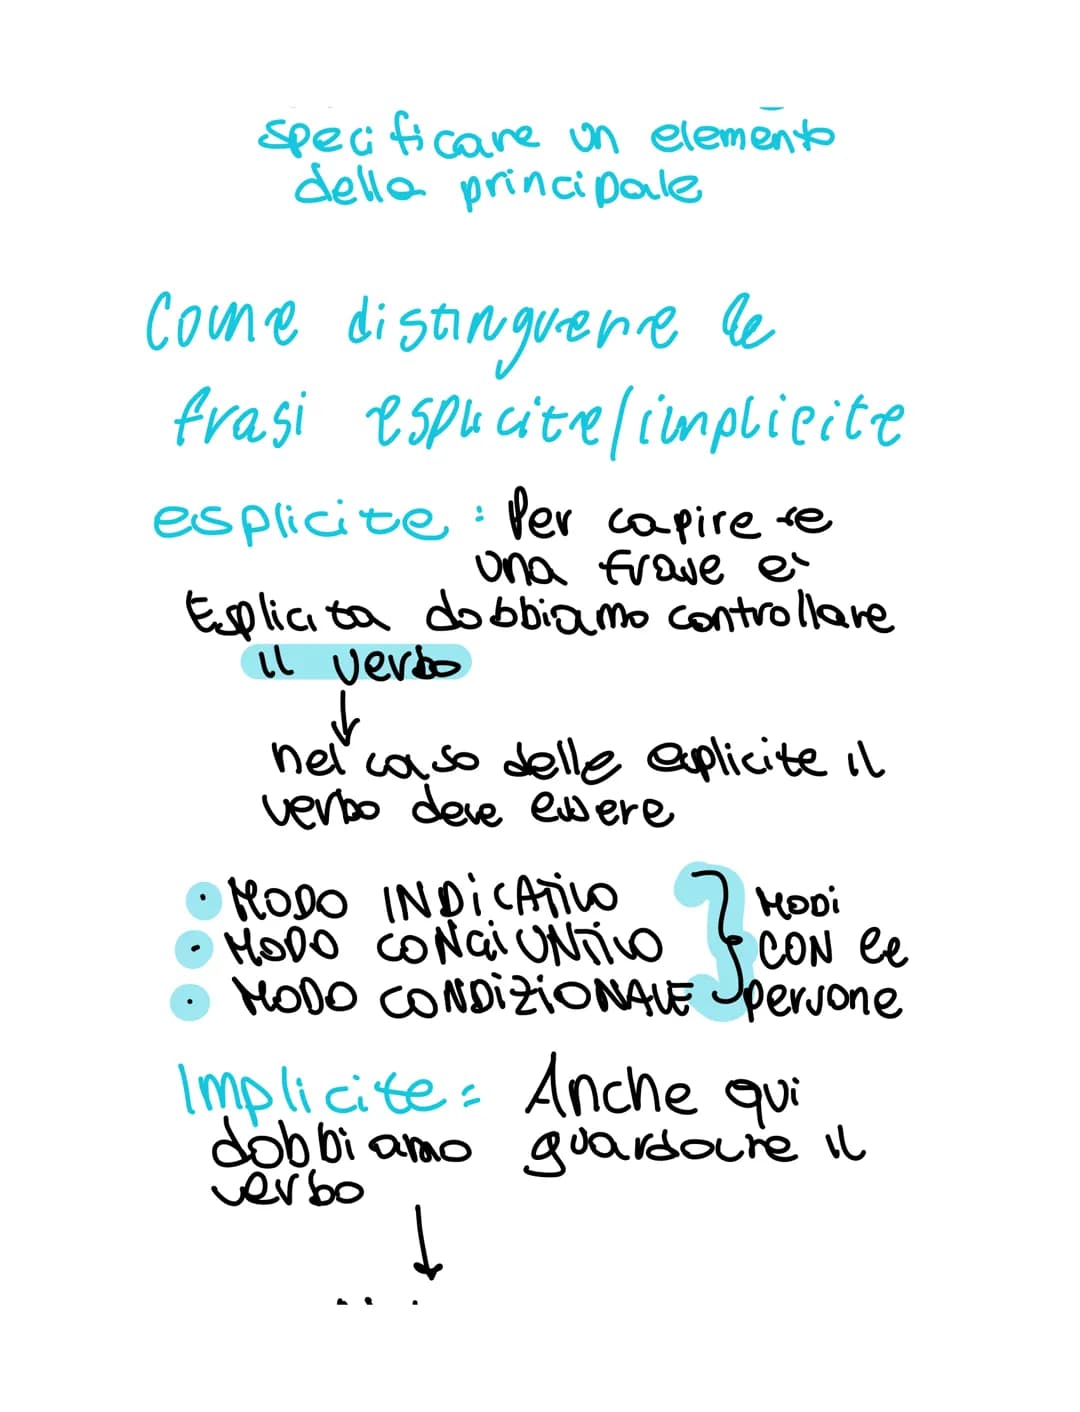 specificare un elemento
della principale
Come distinguere le
frasi esplicite/implicite
esplicite : Per capire se
una frase è
Esplicita dobbiamo controllare
il verbo
↓
nel caso delle esplicite il
verbo deve essere
• MODO INDICATIVO
• MODO CONGIUNTIVO
• MODO CONDIZIONALE
MODI
CON le
persone
Implicite = Anche qui
dobbiamo guardare il
verbo
↓